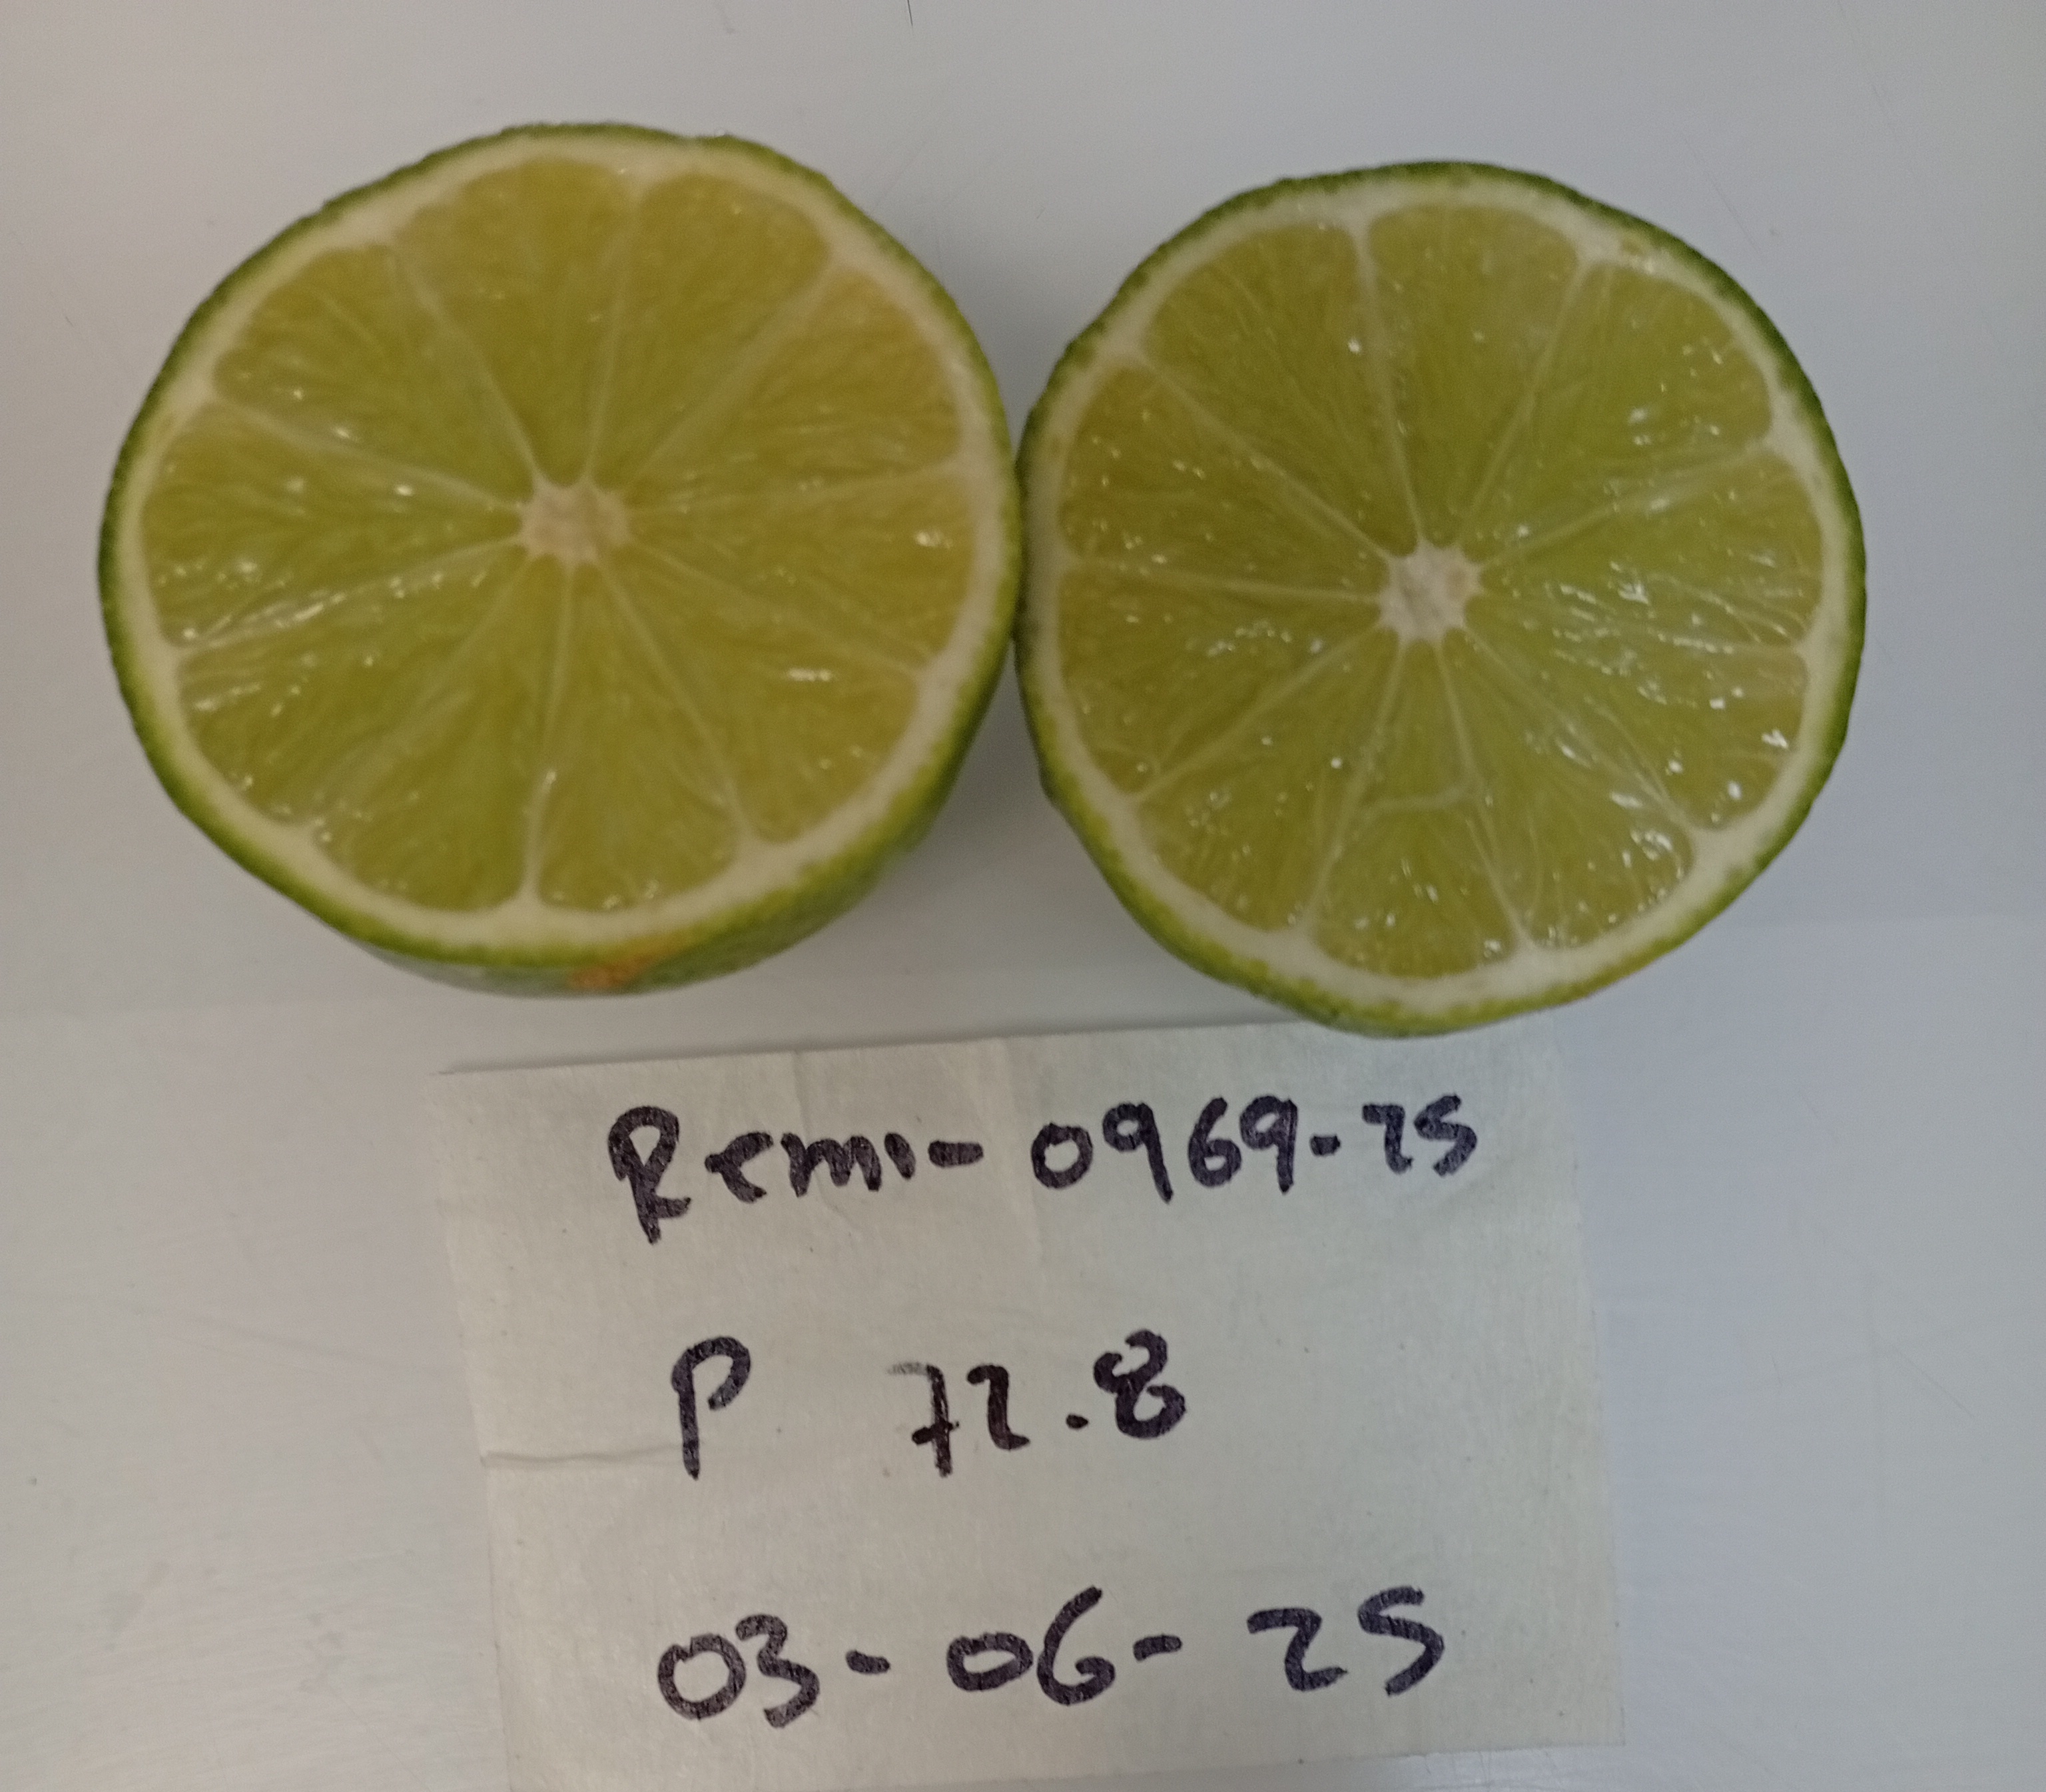 Remi-0969-25
P 72.8
03-06-25